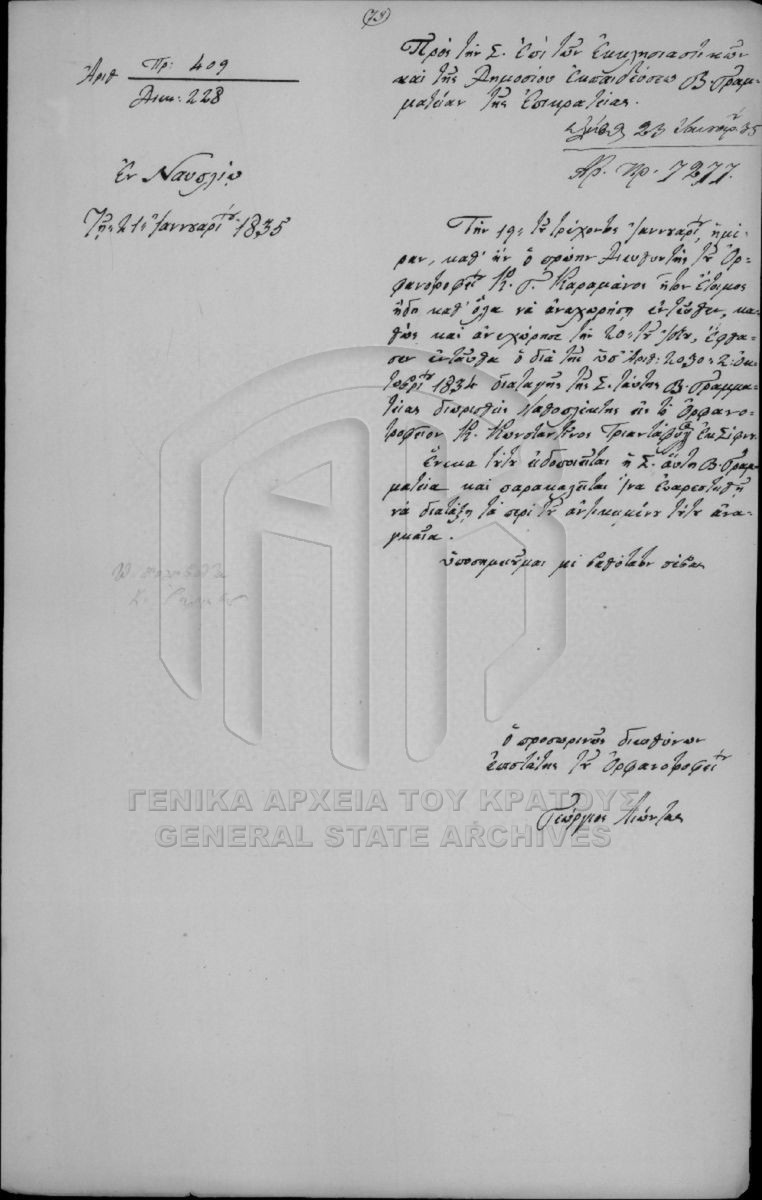 (78)
Ἀριθ Πρ: 409
Διεκ: 228
Ἐν Ναυπλίῳ
Τῇ 21 Ἰαννουαρίου 1835
Πρὸς τὴν Σ. ἐπὶ τῶν Ἐκκλησιαστικῶν
καὶ τῆς Δημοσίου Ἐκπαιδεύσεω Β. Γραμ-
ματείαν τῆς Ἐπικρατείας.
23
35
Ἀρ. πρ. 7277.
Τὴν 19 τοῦ τρέχοντος Ἰαννουαρίου ἡμέ-
ραν, καθ' ἣν ὁ πρώην Διευθυντὴς τοῦ Ὀρ-
φανοτροφείου Κ. Γ. Καραμάνος ἦτον ἕτοιμος
ἤδη καθ' ὅλα νὰ ἀναχωρήσῃ ἐντεῦθεν, κα-
θὼς καὶ ἀνεχώρησε τὴν 20 τοῦ ἰδίου, ἔφθα-
σεν ἐνταῦθα ὁ διὰ τῆς ὑπ' Ἀριθ: 2030 2 Ὀκ-
τωβρίου 1834 διαταγῆς τῆς Σ. ταύτης Β. Γραμμα-
τείας διωρισθεὶς εἰς τὸ Ὀρφανο-
τροφεῖον Κ. Κωνσταντῖνος Τριαντάφυλλου ἐκ Σίφνου
Ἕνεκα τούτου εἰδοποιεῖται ἡ Σ. αὕτη Β. Γραμ-
ματεία καὶ παρακαλεῖται ἵνα εὐαρεστηθῇ
νὰ διατάξῃ τὰ περὶ τοῦ ἀντικειμένου τούτου ἀνα-
γκαῖα.
ὑποσημειοῦμαι μὲ βαθύτατον σέβας
ὁ προσωρινῶς διευθύνων
ἐπιστάτης τοῦ Ὀρφανοτροφείου
Γεώργιος Λεόντας
ΓΕΝΙΚΑ ΑΡΧΕΙΑ ΤΟΥ ΚΡΑΤΟΥΣ
GENERAL STATE ARCHIVES